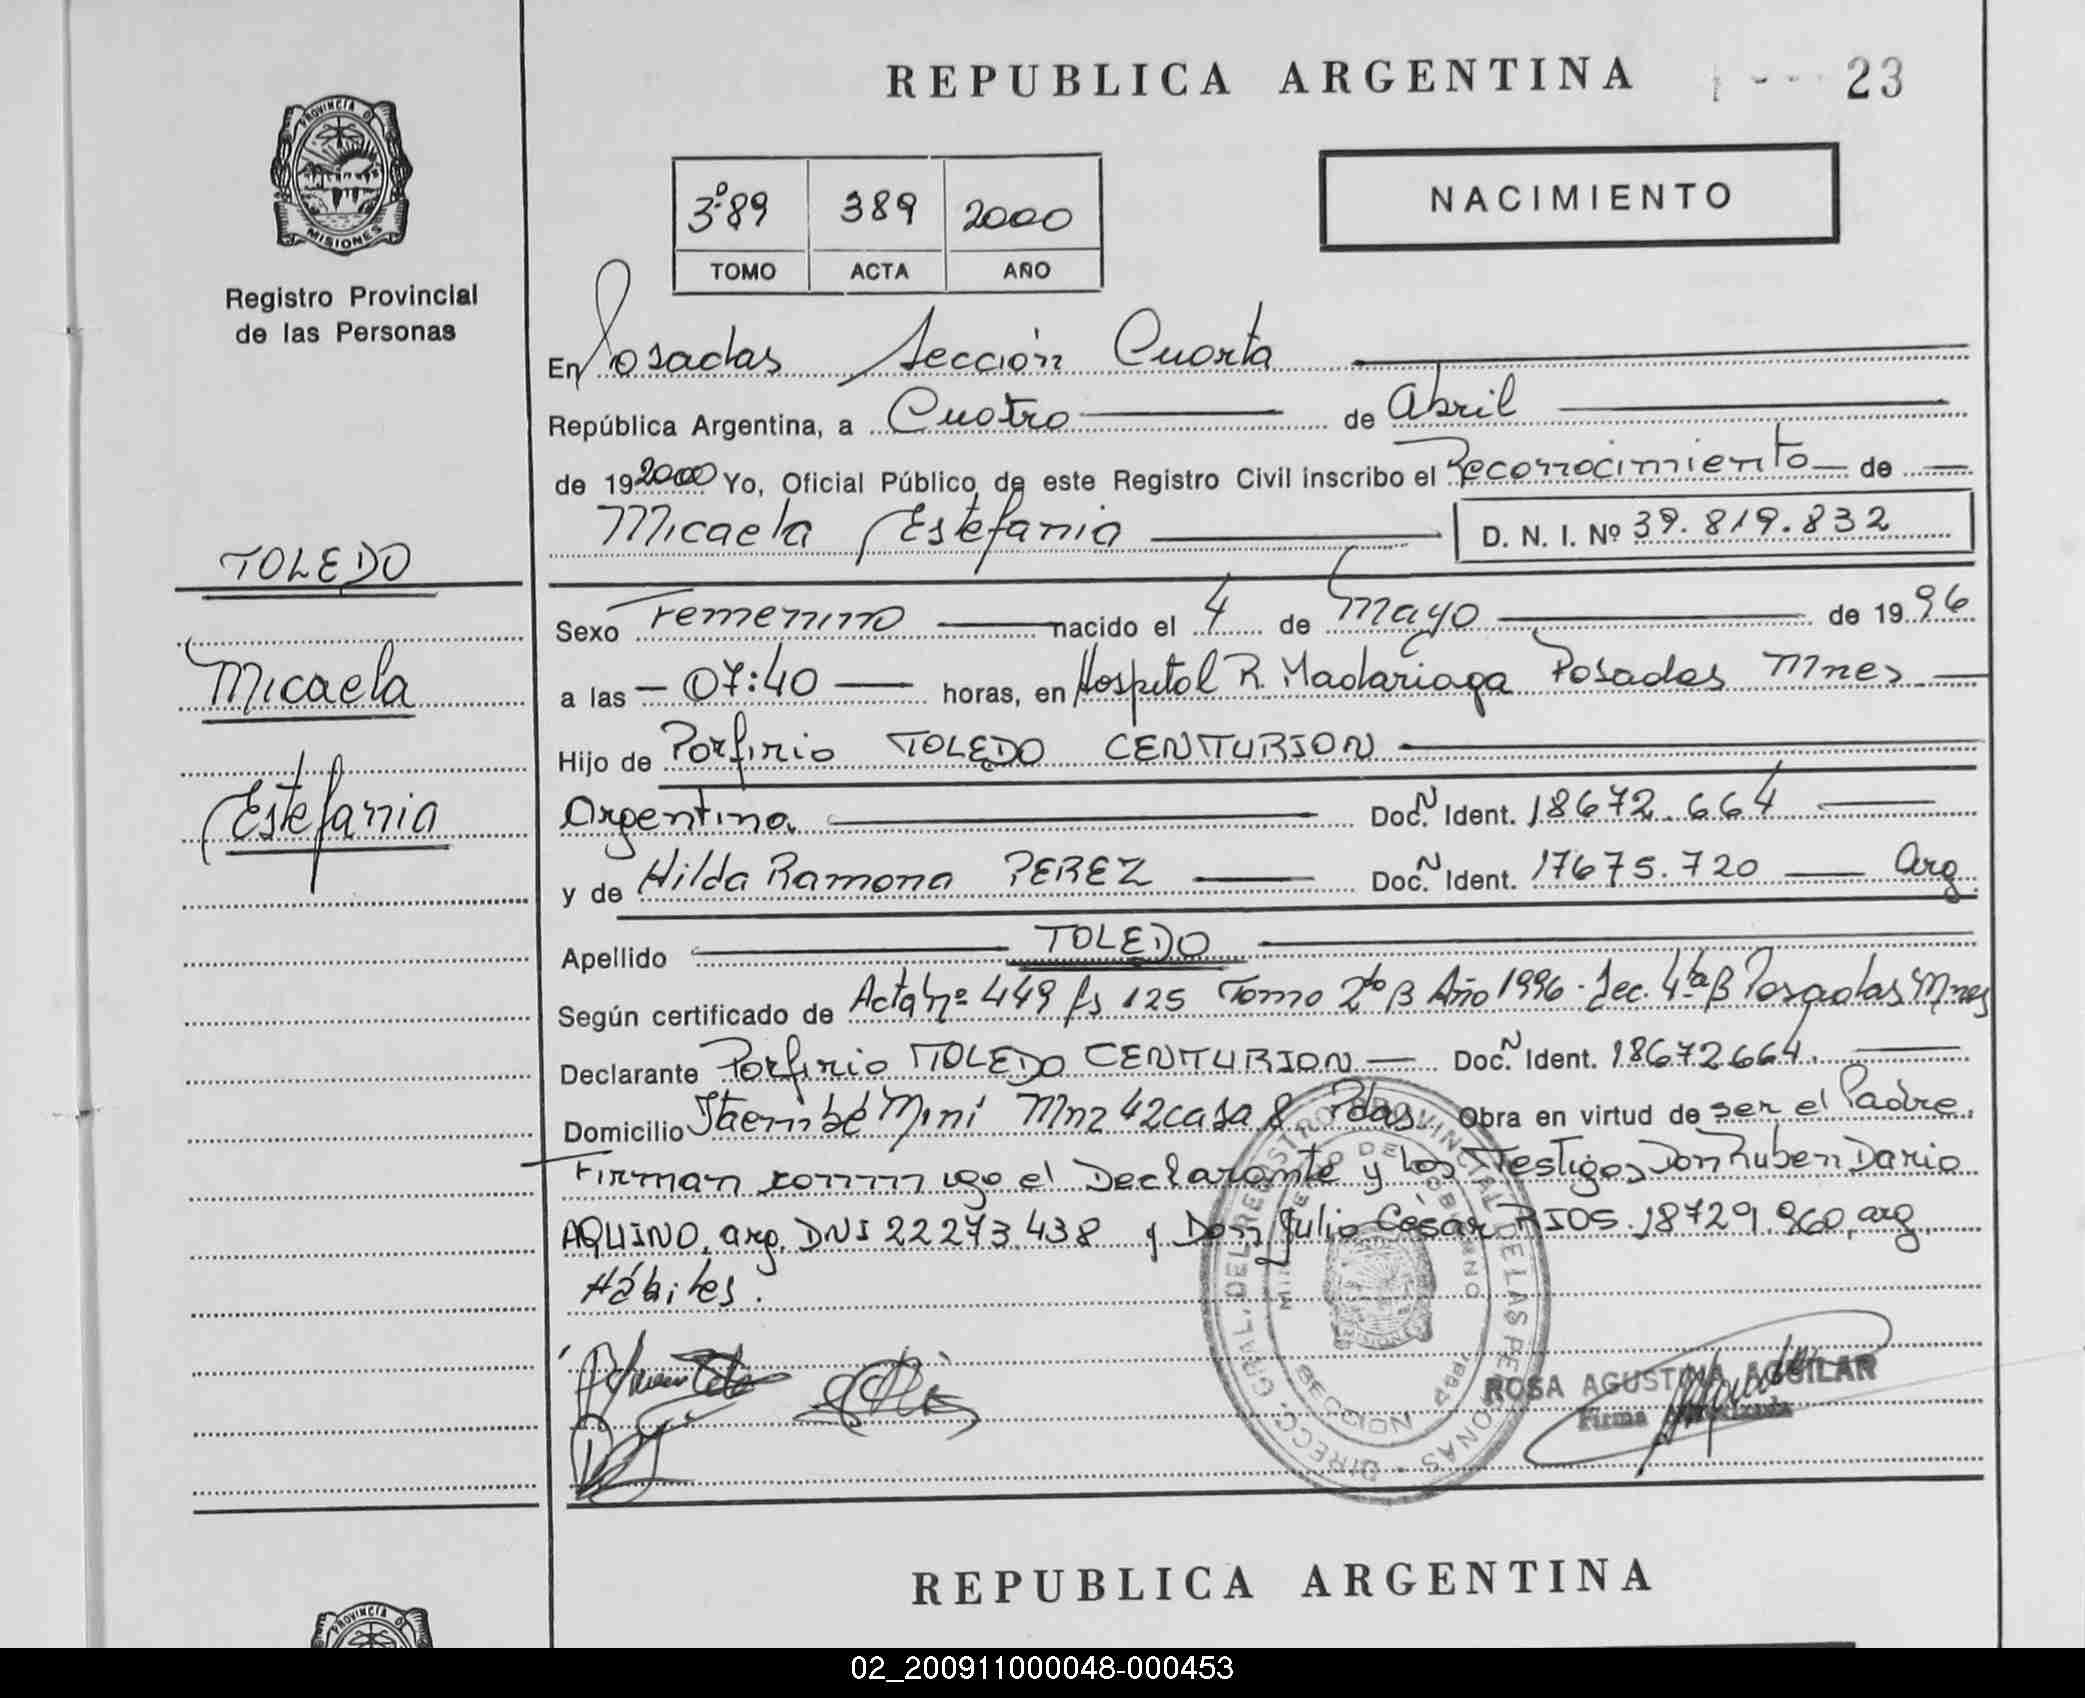 REPUBLICA ARGENTINA
23
PROVINCIA D
MISIONES
Registro Provincial
de las Personas
3º 89 389 2000
TOMO ACTA AÑO
NACIMIENTO
En Posadas Sección Cuarta
República Argentina, a Cuatro de Abril
de 19 2000 Yo, Oficial Público de este Registro Civil inscribo el Reconocimiento de
Micaela Estefania D. N. I. Nº 39.819.832
TOLEDO
Micaela
Estefania
Sexo Femenino nacido el 4 de Mayo de 19 96
a las 07:40 horas, en Hospital R. Madariaga Posadas Mnes
Hijo de Porfirio TOLEDO CENTURION
Argentina Doc. N Ident. 18672.664
y de Hilda Ramona PEREZ Doc. N Ident. 17675.720 Arg.
Apellido TOLEDO
Según certificado de Acta nº 449 fs 125 Tomo 2do B Año 1996. Sec. 4ta B Posadas Mnes
Declarante Porfirio TOLEDO CENTURION Doc. N Ident. 18672664.
Domicilio Itaembé Mini Mnz 42 casa 8 Pdas. Obra en virtud de ser el Padre.
Firman conmigo el Declarante y los Testigos Don Ruben Dario
AQUINO, arg. DNI 22273.438 y Don Julio César RIOS. 18729.960, arg.
Hábiles.
DIRECC. GRAL. DEL REGISTRO PROVINCIAL DE LAS PERSONAS
SECCION
MISIONES
ROSA AGUSTINA AGUILAR
Firma Autorizada
REPUBLICA ARGENTINA
PROVINCIA D
02_200911000048-000453